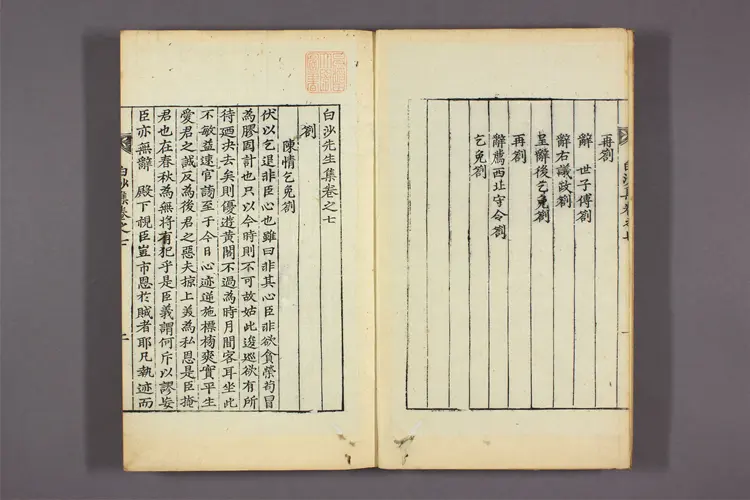 白沙集卷之七 一
再劄
辭 世子傅劄
辭右議政劄
呈辭後乞免劄
再劄
辭薦西北守令劄
乞免劄
白沙先生集卷之七
劄
陳情乞免劄
伏以乞退非臣心也雖曰非其心臣非欲貪榮苟冒
為膠固計也只以今時則不可故姑此逡巡欲有所
待廼決去矣則優遊黃閣不過為時月間客耳坐此
不敏益速官謗至于今日心迹逆施標楬爽實平生
愛君之誠反為後君之惡夫掠上美為私恩是臣掩
君也在春秋為無將有犯乎是臣義謂何斥以謬妄
臣亦無辭 殿下視臣豈市恩於賊者耶凡執迹而
白沙集卷之七 二